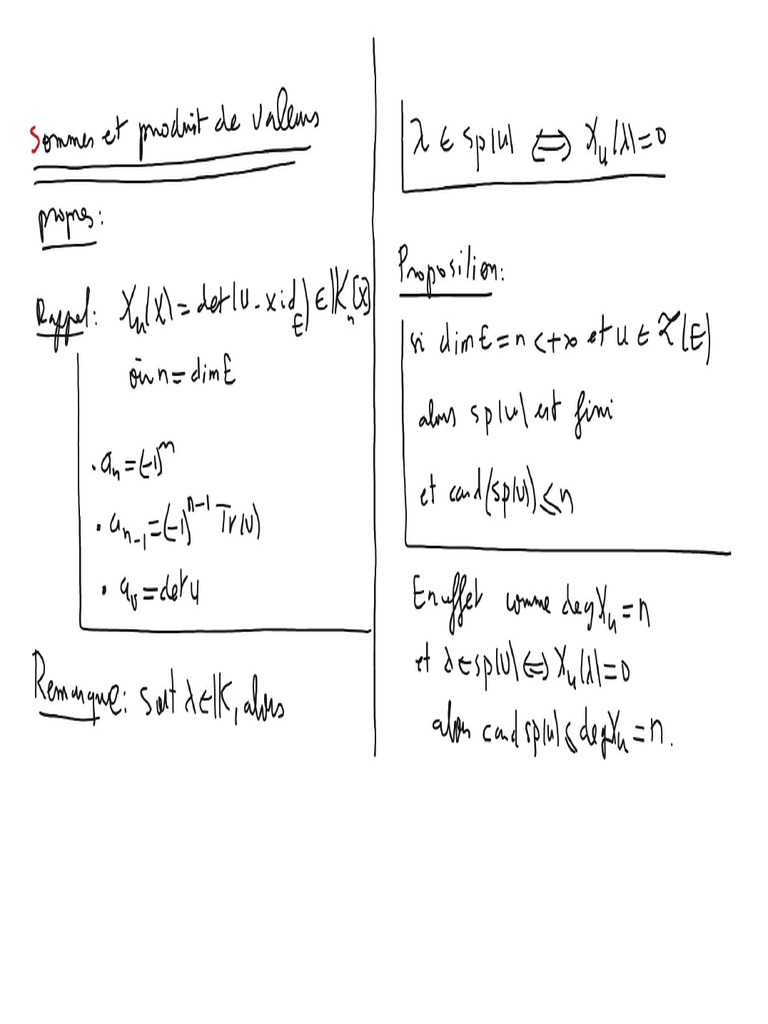 Sommes et produit de valeurs
propres:
Rappel: χ_u(X) = det(u - x id_E) ∈ K_n[X]
où n = dim E
• a_n = (-1)^n
• a_{n-1} = (-1)^{n-1} Tr(u)
• a_0 = det u
Remarque: soit λ ∈ K, alors
λ ∈ sp(u) ⟺ χ_u(λ) = 0
Proposition:
si dim E = n < +∞ et u ∈ ℒ(E)
alors sp(u) est fini
et card(sp(u)) ≤ n
En effet comme deg χ_u = n
et λ ∈ sp(u) ⟺ χ_u(λ) = 0
alors card sp(u) ≤ deg χ_u = n.